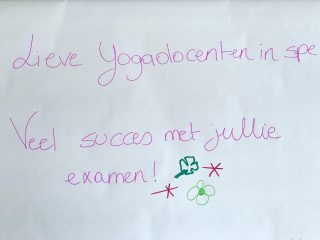 Lieve Yogadocenten in spe
Veel succes met jullie
examen!